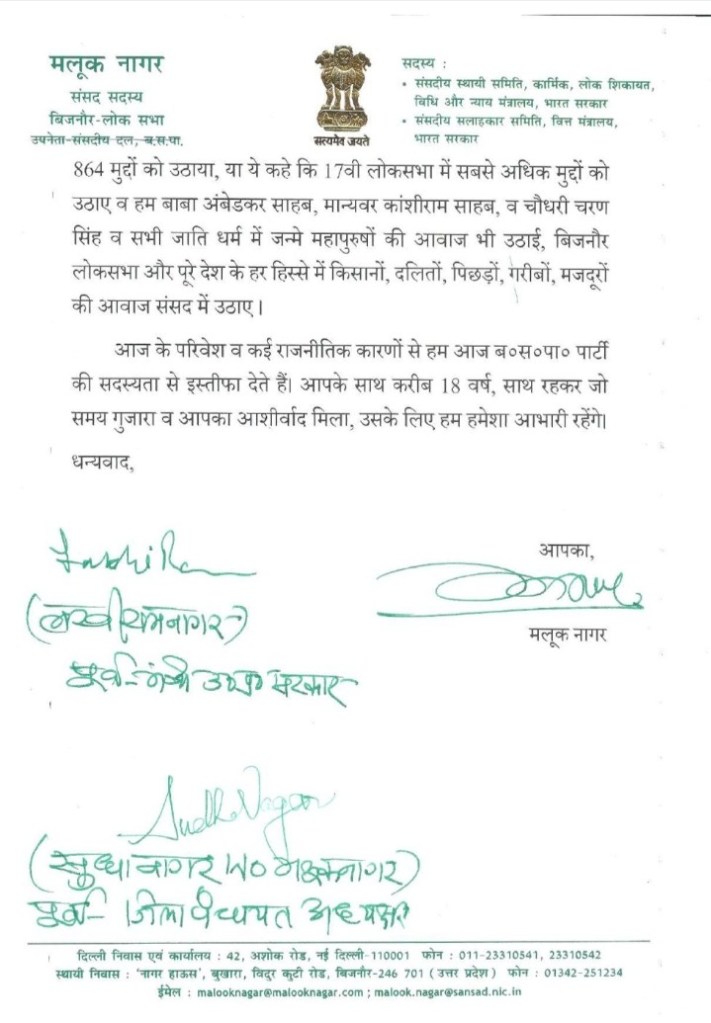 मलूक नागर
संसद सदस्य
बिजनौर-लोक सभा
उपनेता-संसदीय दल, ब.स.पा.
सत्यमेव जयते
सदस्य :
• संसदीय स्थायी समिति, कार्मिक, लोक शिकायत,
विधि और न्याय मंत्रालय, भारत सरकार
• संसदीय सलाहकार समिति, वित्त मंत्रालय,
भारत सरकार
864 मुद्दों को उठाया, या ये कहे कि 17वी लोकसभा में सबसे अधिक मुद्दों को
उठाए व हम बाबा अंबेडकर साहब, मान्यवर कांशीराम साहब, व चौधरी चरण
सिंह व सभी जाति धर्म में जन्मे महापुरुषों की आवाज भी उठाई, बिजनौर
लोकसभा और पूरे देश के हर हिस्से में किसानों, दलितों, पिछड़ों, गरीबों, मजदूरों
की आवाज संसद में उठाए।
आज के परिवेश व कई राजनीतिक कारणों से हम आज ब०स०पा० पार्टी
की सदस्यता से इस्तीफा देते हैं। आपके साथ करीब 18 वर्ष, साथ रहकर जो
समय गुजारा व आपका आशीर्वाद मिला, उसके लिए हम हमेशा आभारी रहेंगे।
धन्यवाद,
आपका,
मलूक नागर
(लखीरामनागर)
पूर्व-मंत्री उ०प्र० सरकार
Sudha Nagar
(सुधा नागर W/O मलूकनागर)
पूर्व- जिला पंचायत अध्यक्ष
दिल्ली निवास एवं कार्यालय : 42, अशोक रोड, नई दिल्ली-110001 फोन : 011-23310541, 23310542
स्थायी निवास : 'नागर हाऊस', बुखारा, विदुर कुटी रोड, बिजनौर-246 701 (उत्तर प्रदेश) फोन : 01342-251234
ईमेल : malooknagar@malooknagar.com ; malook.nagar@sansad.nic.in